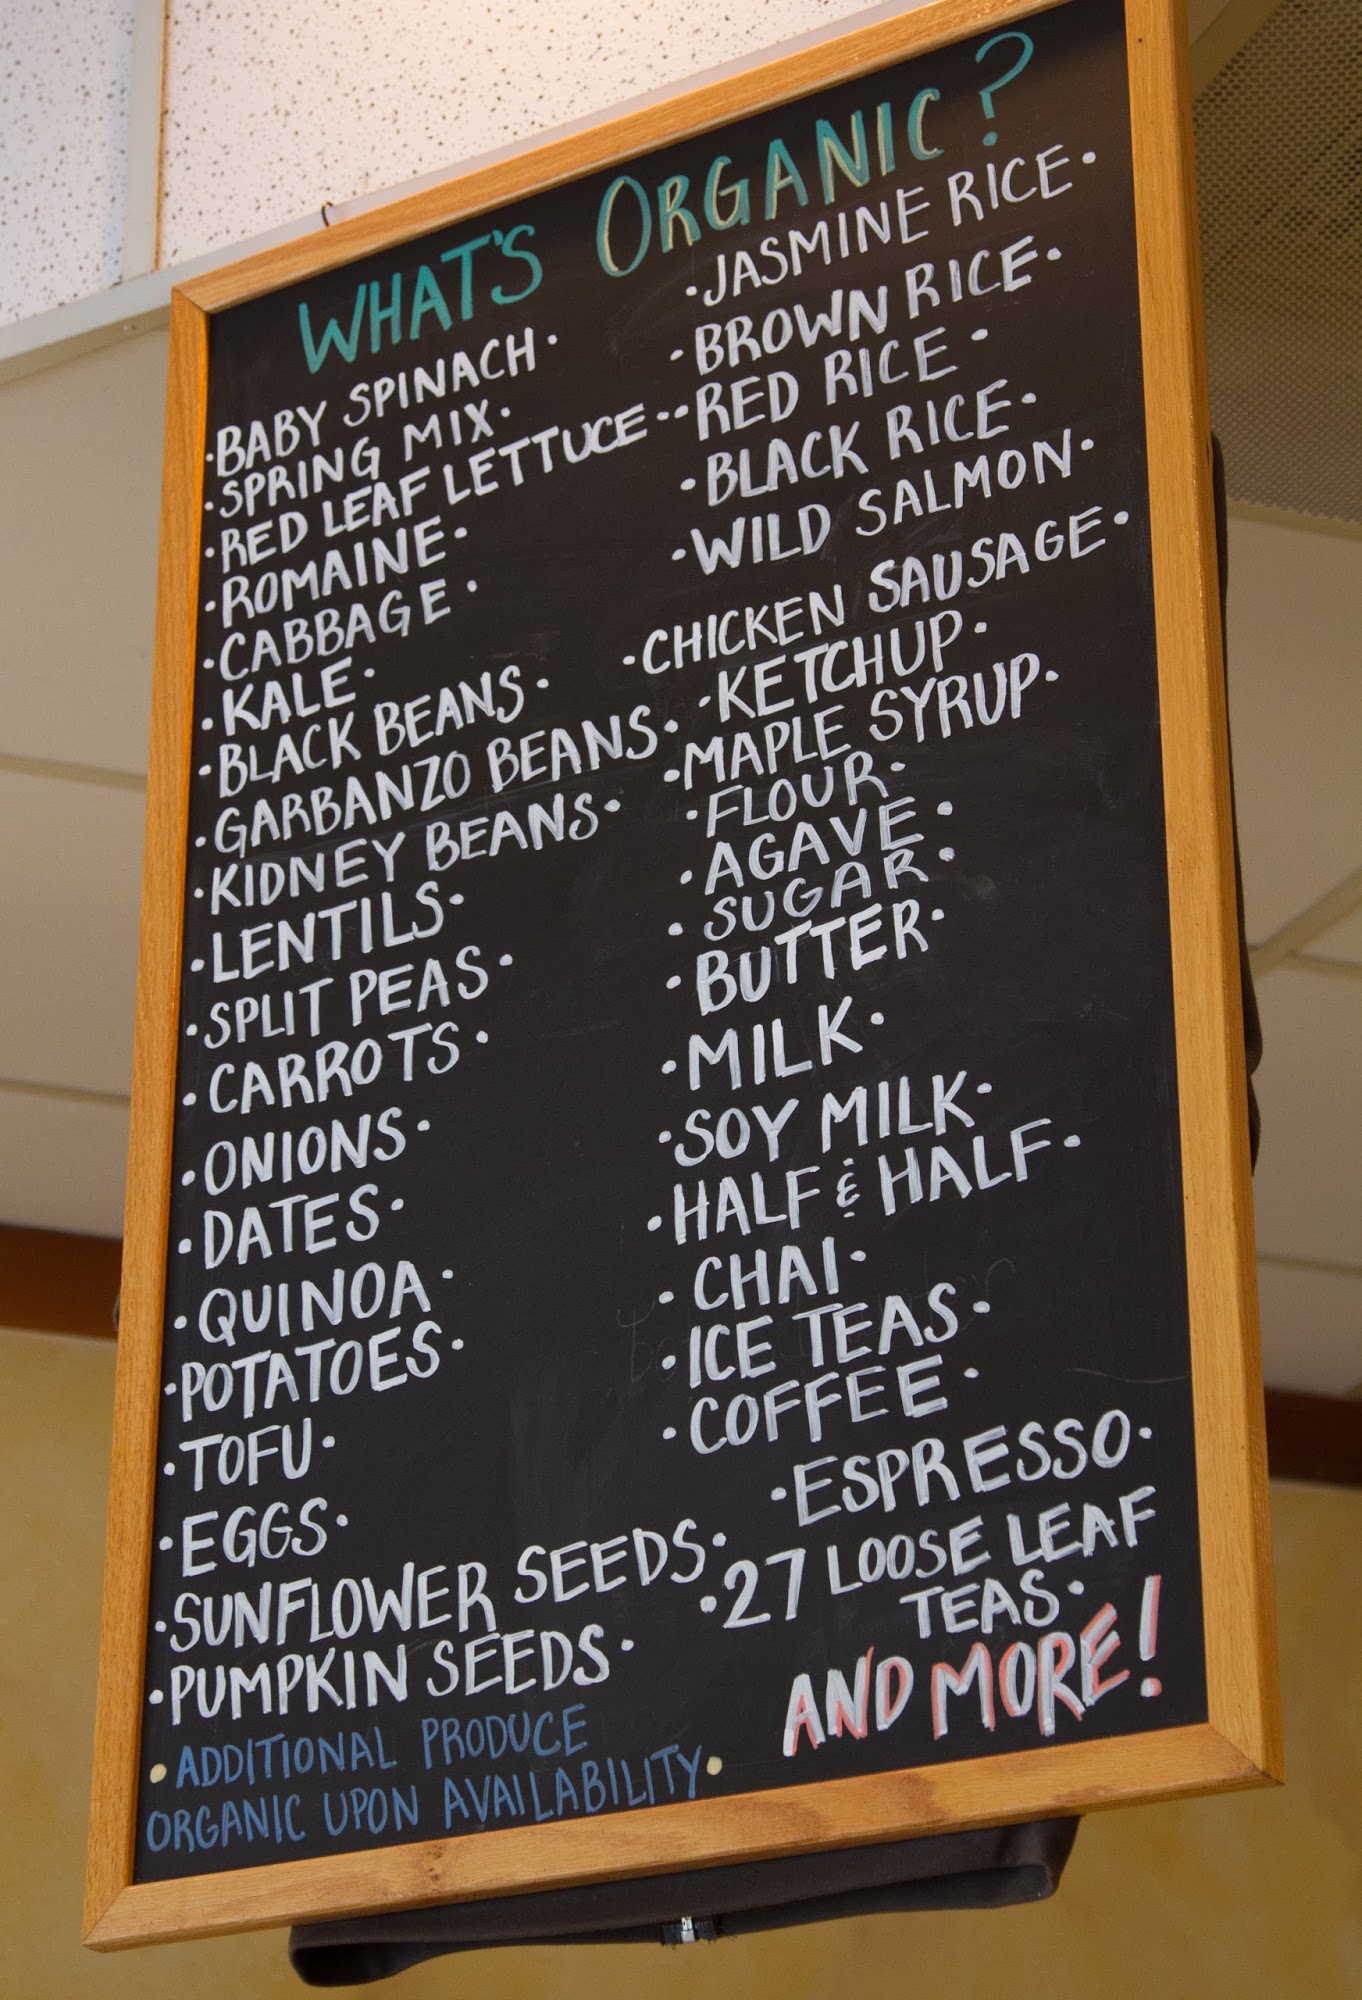 WHAT'S ORGANIC?
·BABY SPINACH·
·SPRING MIX·
·RED LEAF LETTUCE·
·ROMAINE·
·CABBAGE·
·KALE·
·BLACK BEANS·
·GARBANZO BEANS·
·KIDNEY BEANS·
·LENTILS·
·SPLIT PEAS·
·CARROTS·
·ONIONS·
·DATES·
·QUINOA·
·POTATOES·
·TOFU·
·EGGS·
·SUNFLOWER SEEDS·
·PUMPKIN SEEDS·
·ADDITIONAL PRODUCE
ORGANIC UPON AVAILABILITY·
·JASMINE RICE·
·BROWN RICE·
·RED RICE·
·BLACK RICE·
·WILD SALMON·
·CHICKEN SAUSAGE·
·KETCHUP·
·MAPLE SYRUP·
·FLOUR·
·AGAVE·
·SUGAR·
·BUTTER·
·MILK·
·SOY MILK·
·HALF & HALF·
·CHAI·
·ICE TEAS·
·COFFEE·
·ESPRESSO·
·27 LOOSE LEAF
TEAS·
AND MORE!